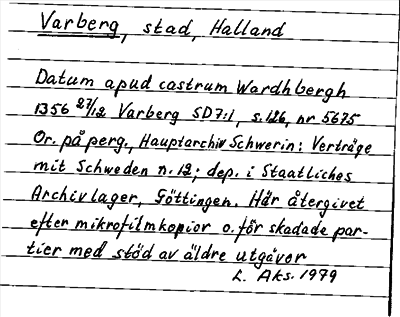 Varberg, stad, Halland
Datum apud castrum Wardhbergh
1356 27/12 Varberg SD7:1, s. 126, nr 5675
Or. på perg., Hauptarchiv Schwerin: Verträge
mit Schweden n. 12; dep. i Staatliches
Archivlager, Göttingen. Här återgivet
efter mikrofilmkopior o. för skadade par-
tier med stöd av äldre utgåvor
L. Aks. 1979